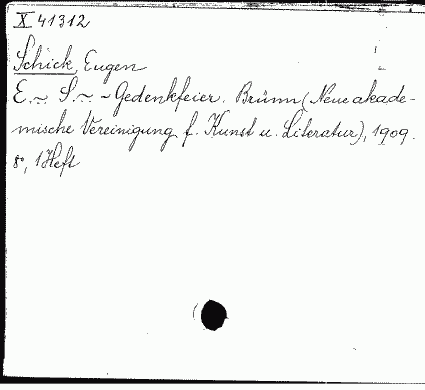 X 41312
Schick, Eugen
E. ~ S. ~ - Gedenkfeier. Brünn (Neue akade-
mische Vereinigung f. Kunst u. Literatur), 1909.
8°, 1 Heft